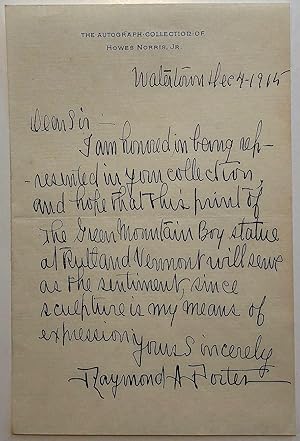 THE AUTOGRAPH COLLECTION OF
HOWES NORRIS, JR.
Watertown Dec 7-1915
Dear Sir :-
I am honored in being rep-
-resented in your collection,
and hope that this print of
The Green Mountain Boy statue
at Rutland Vermont will serve
as the sentiment, since
sculpture is my means of
expression
Yours Sincerely
Raymond A Porter